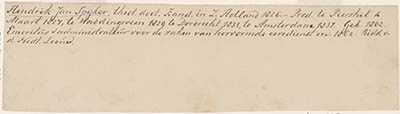 Hendrik Jan Spijker, theol. doct. Kand. in Z. Holland 1826. – Pred. te Peershil 4
Maart 1827, te Waddingsveen 1829, te Dordrecht 1831, te Amsterdam 1837. Geb. 1802.
Emeritus & administrateur voor de zaken van hervormde eeredienst enz. 1862. Ridd. v.
d. Nedl. Leeuw.